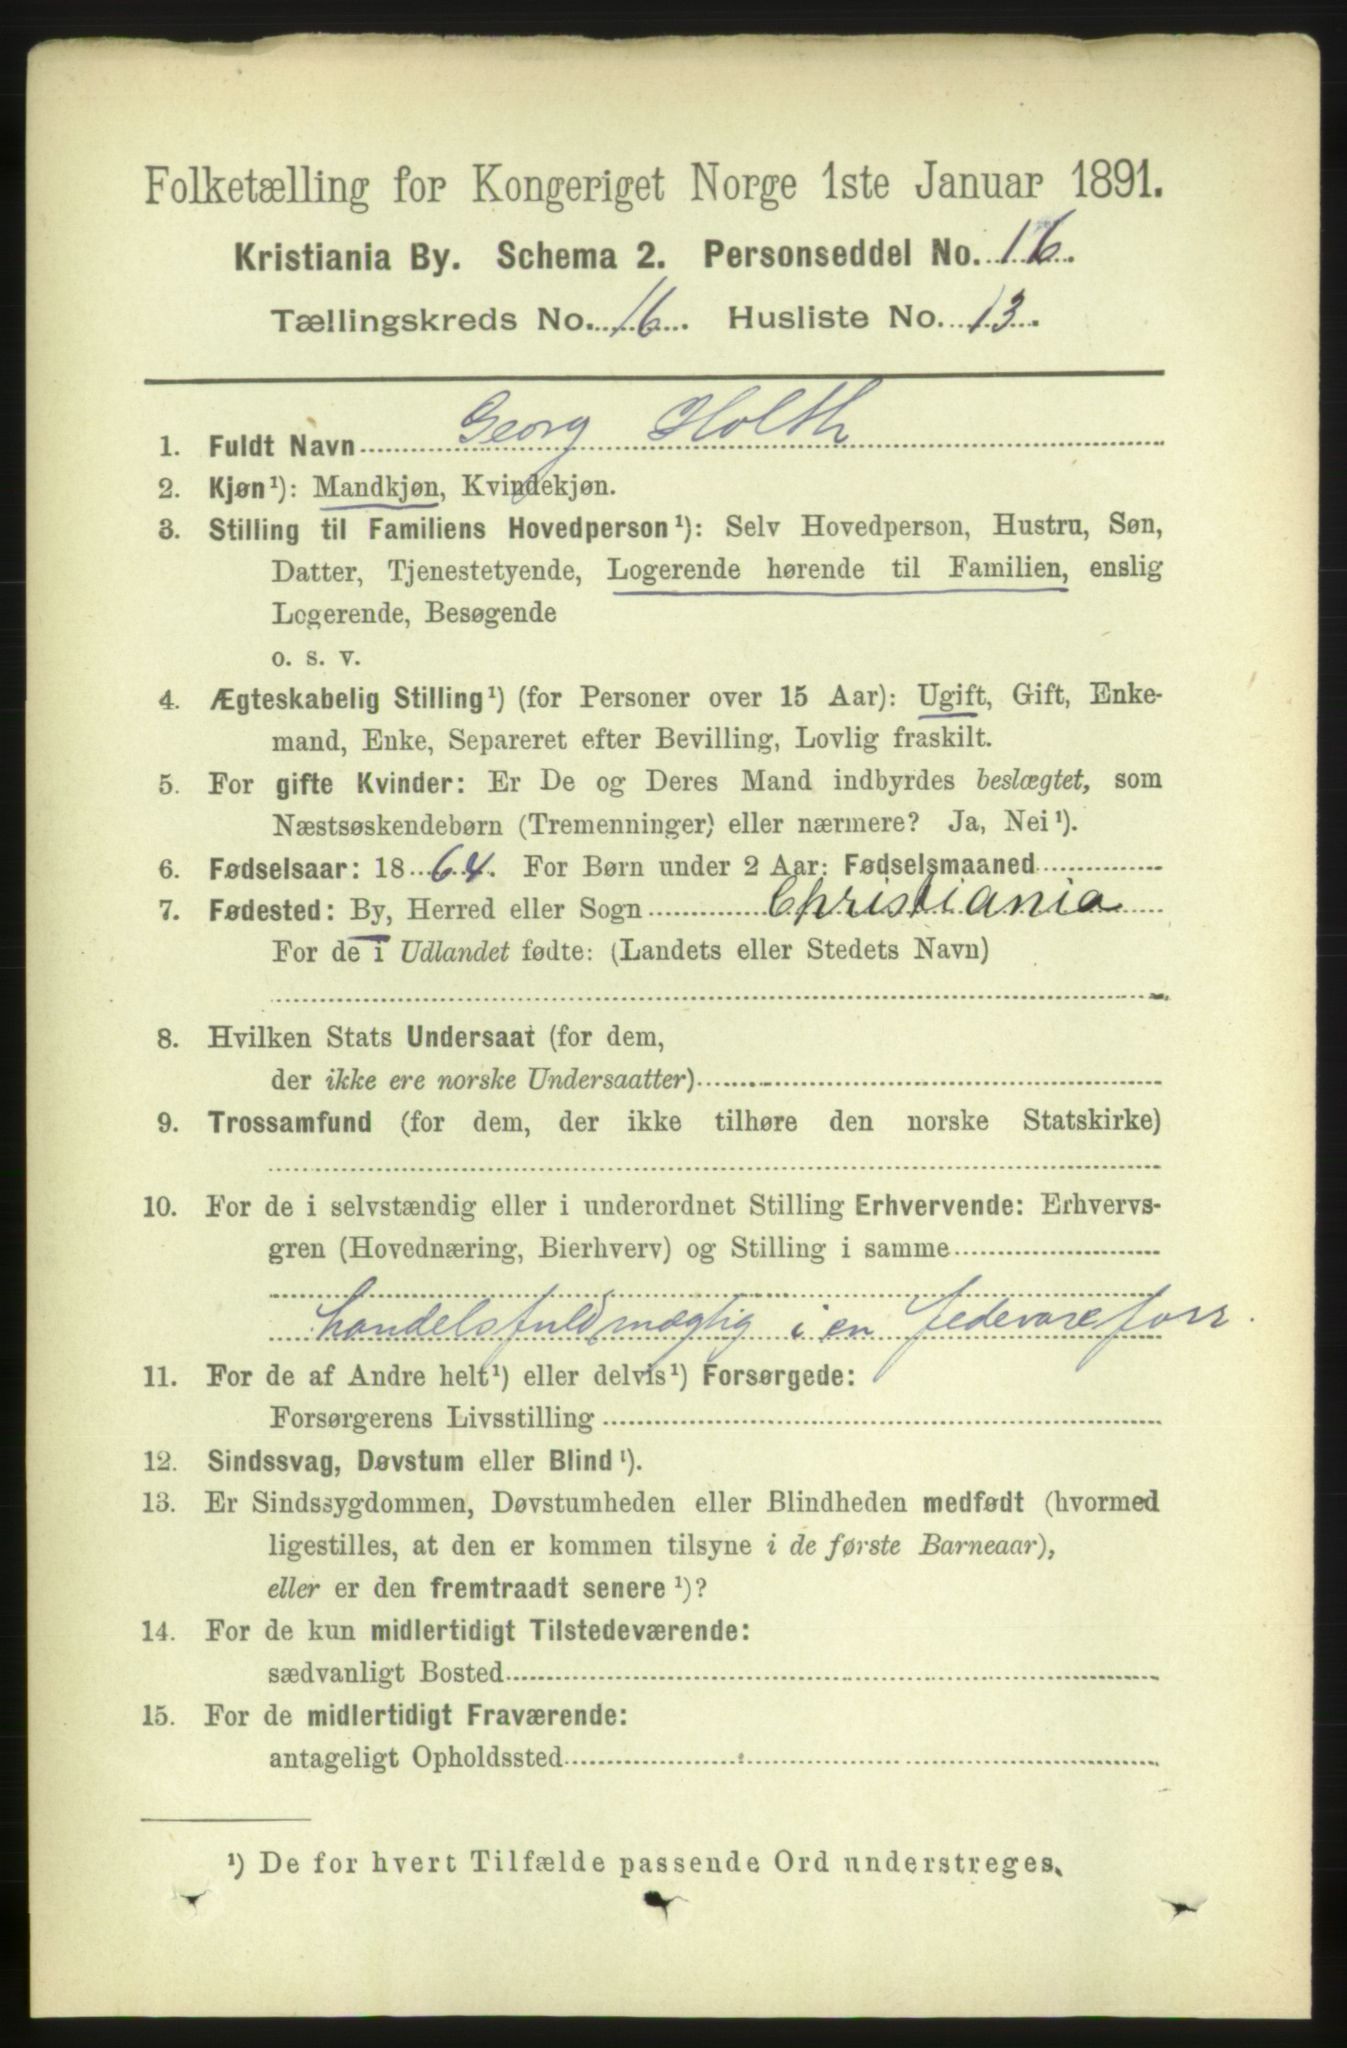 Folketælling for Kongeriget Norge 1ste Januar 1891.
Kristiania By. Schema 2. Personseddel No. 16.
Tællingskreds No. 16. Husliste No. 13.
1. Fuldt Navn Georg Holth
2. Kjøn¹): Mandkjøn, Kvindekjøn.
3. Stilling til Familiens Hovedperson¹): Selv Hovedperson, Hustru, Søn,
Datter, Tjenestetyende, Logerende hørende til Familien, enslig
Logerende, Besøgende
o. s. v.
4. Ægteskabelig Stilling¹) (for Personer over 15 Aar): Ugift, Gift, Enke-
mand, Enke, Separeret efter Bevilling, Lovlig fraskilt.
5. For gifte Kvinder: Er De og Deres Mand indbyrdes beslægtet, som
Næstsøskendebørn (Tremenninger) eller nærmere? Ja, Nei¹).
6. Fødselsaar: 1864. For Børn under 2 Aar: Fødselsmaaned
7. Fødested: By, Herred eller Sogn Christiania
For de i Udlandet fødte: (Landets eller Stedets Navn)
8. Hvilken Stats Undersaat (for dem,
der ikke ere norske Undersaatter)
9. Trossamfund (for dem, der ikke tilhøre den norske Statskirke)
10. For de i selvstændig eller i underordnet Stilling Erhvervende: Erhvervs-
gren (Hovednæring, Bierhverv) og Stilling i samme
handelsfuldmægtig i en fedevareforr.
11. For de af Andre helt¹) eller delvis¹) Forsørgede:
Forsørgerens Livsstilling
12. Sindssvag, Døvstum eller Blind¹).
13. Er Sindssygdommen, Døvstumheden eller Blindheden medfødt (hvormed
ligestilles, at den er kommen tilsyne i de første Barneaar),
eller er den fremtraadt senere¹)?
14. For de kun midlertidigt Tilstedeværende:
sædvanligt Bosted
15. For de midlertidigt Fraværende:
antageligt Opholdssted
¹) De for hvert Tilfælde passende Ord understreges.